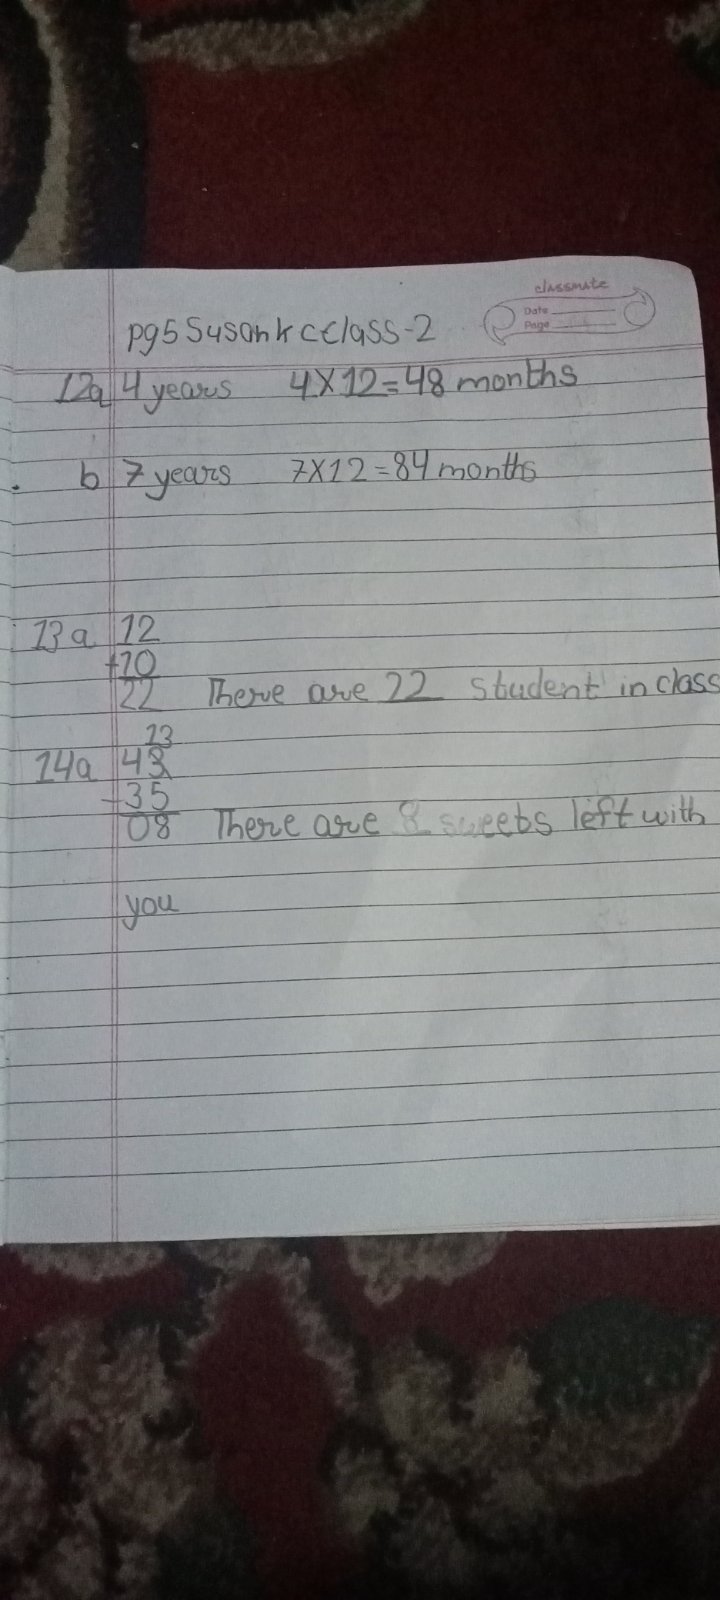 classmate
Date
Page
pg5 Susank c class-2
12a 4 years 4×12=48 months
b 7 years 7×12=84 months
13a 12
+10
22 There are 22 student in class
13
14a 43
-35
08 There are 8 sweets left with
you